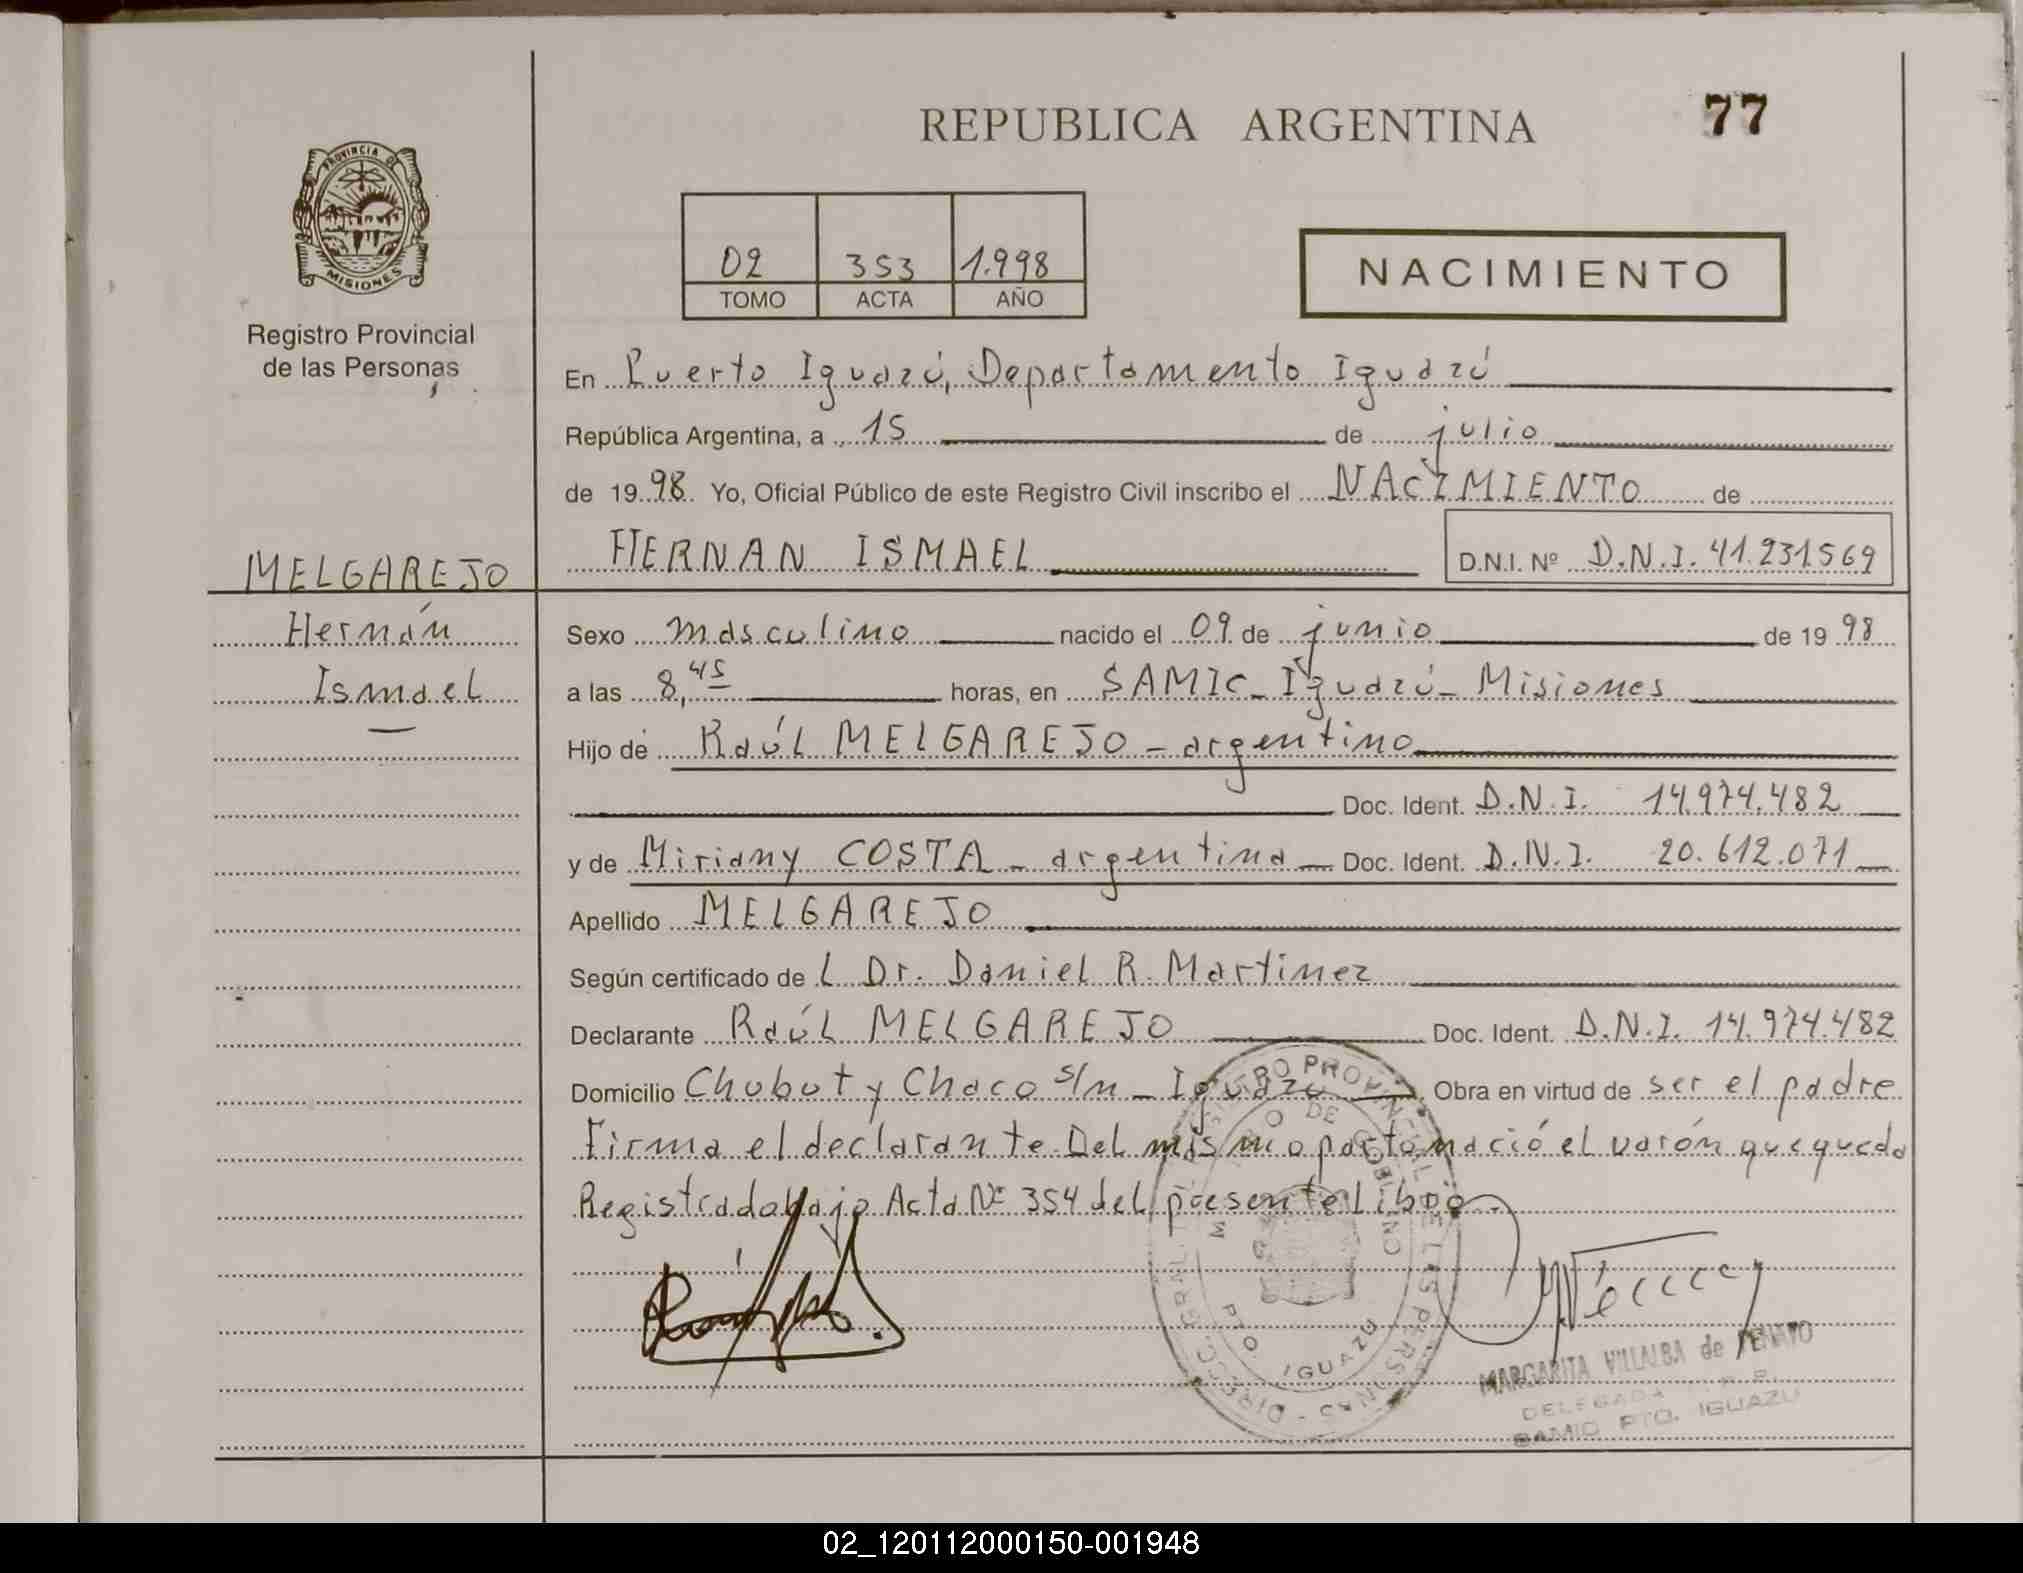 REPUBLICA ARGENTINA
77
PROVINCIA DE
MISIONES
Registro Provincial
de las Personas
02 353 1.998
TOMO ACTA AÑO
NACIMIENTO
En Puerto Iguazú, Departamento Iguazú
República Argentina, a 15 de julio
de 1998 Yo, Oficial Público de este Registro Civil inscribo el NACIMIENTO de
HERNAN ISMAEL D.N.I. Nº D.N.I. 41.231.569
MELGAREJO
Hernán
Ismael
Sexo masculino nacido el 09 de junio de 1998
a las 8,45 horas, en SAMIC - Iguazú - Misiones
Hijo de Raúl MELGAREJO - argentino
Doc. Ident. D.N.I. 14.974.482
y de Miriany COSTA - argentina - Doc. Ident. D.N.I. 20.612.071
Apellido MELGAREJO
Según certificado de L Dr. Daniel R. Martinez
Declarante Raúl MELGAREJO Doc. Ident. D.N.I. 14.974.482
Domicilio Chubut y Chaco s/n - Iguazú Obra en virtud de ser el padre
Firma el declarante. Del mismo parto nació el varón que queda
Registrado bajo Acta Nº 354 del presente Libro.
PTO. IGUAZU
MARGARITA VILLALBA de PENAYO
DELEGADA
SAMIC PTO. IGUAZU
02_120112000150-001948